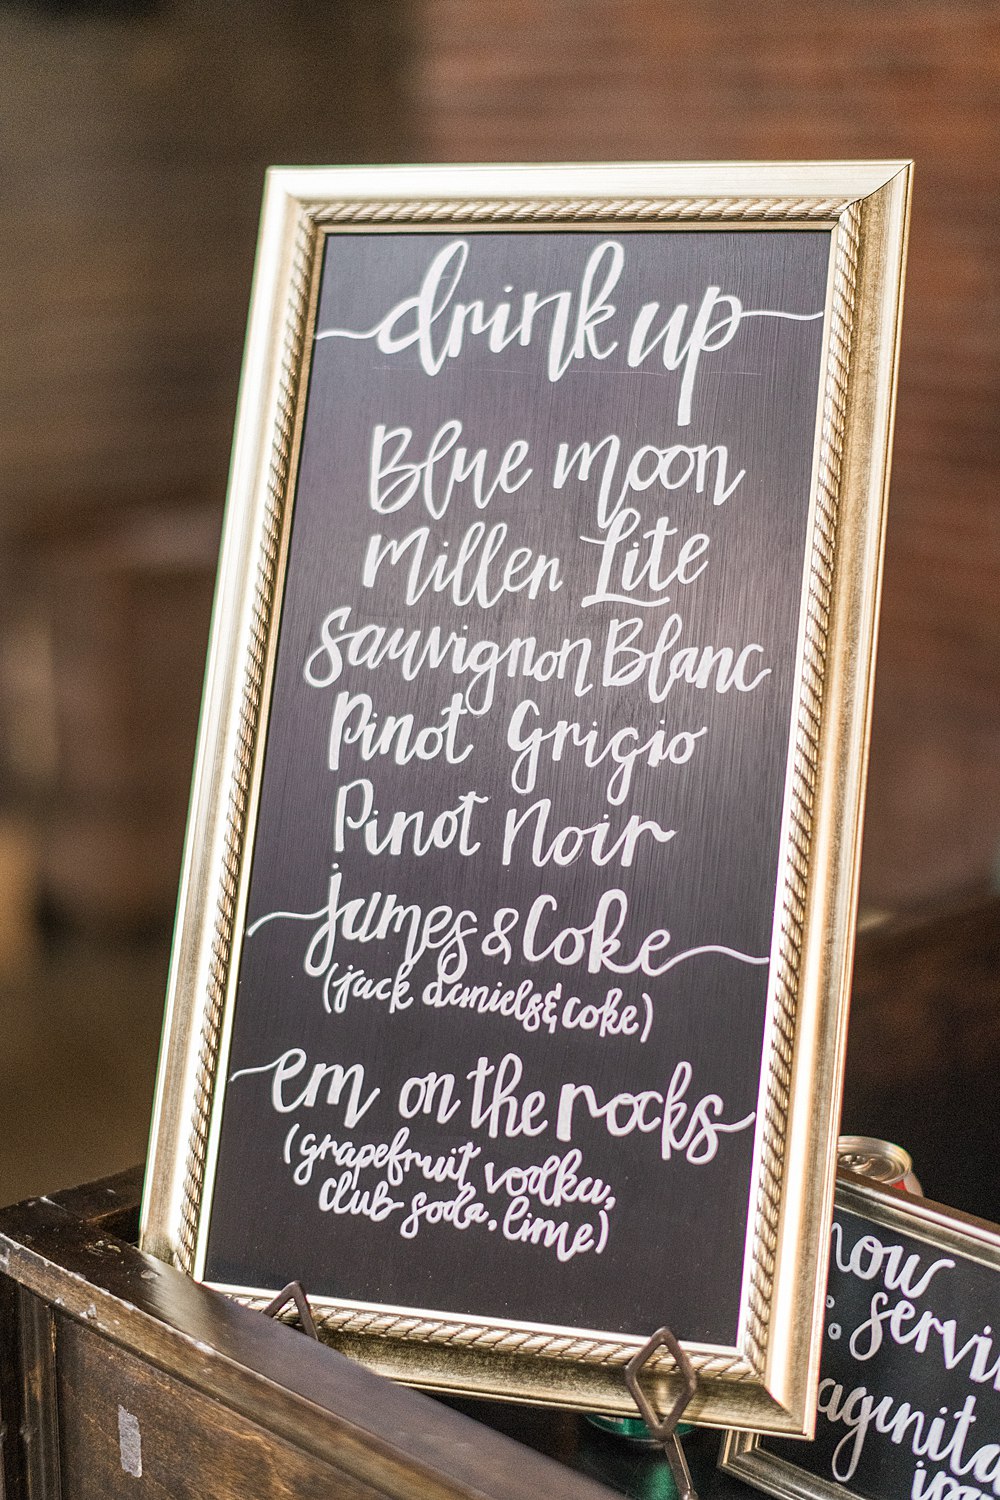 drink up
Blue moon
Miller Lite
Sauvignon Blanc
Pinot Grigio
Pinot Noir
James & Coke
(jack daniels & coke)
em on the rocks
(grapefruit vodka,
club soda, lime)
now
servi
aginita